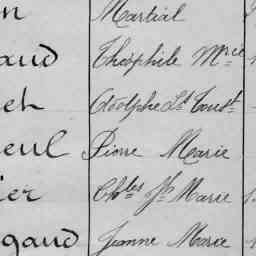 n Martial
aud Théophile Mie
et Adolphe Lis Const
eul Pierre Marie
ier Chles Jh Marie
gaud Jeanne Marie